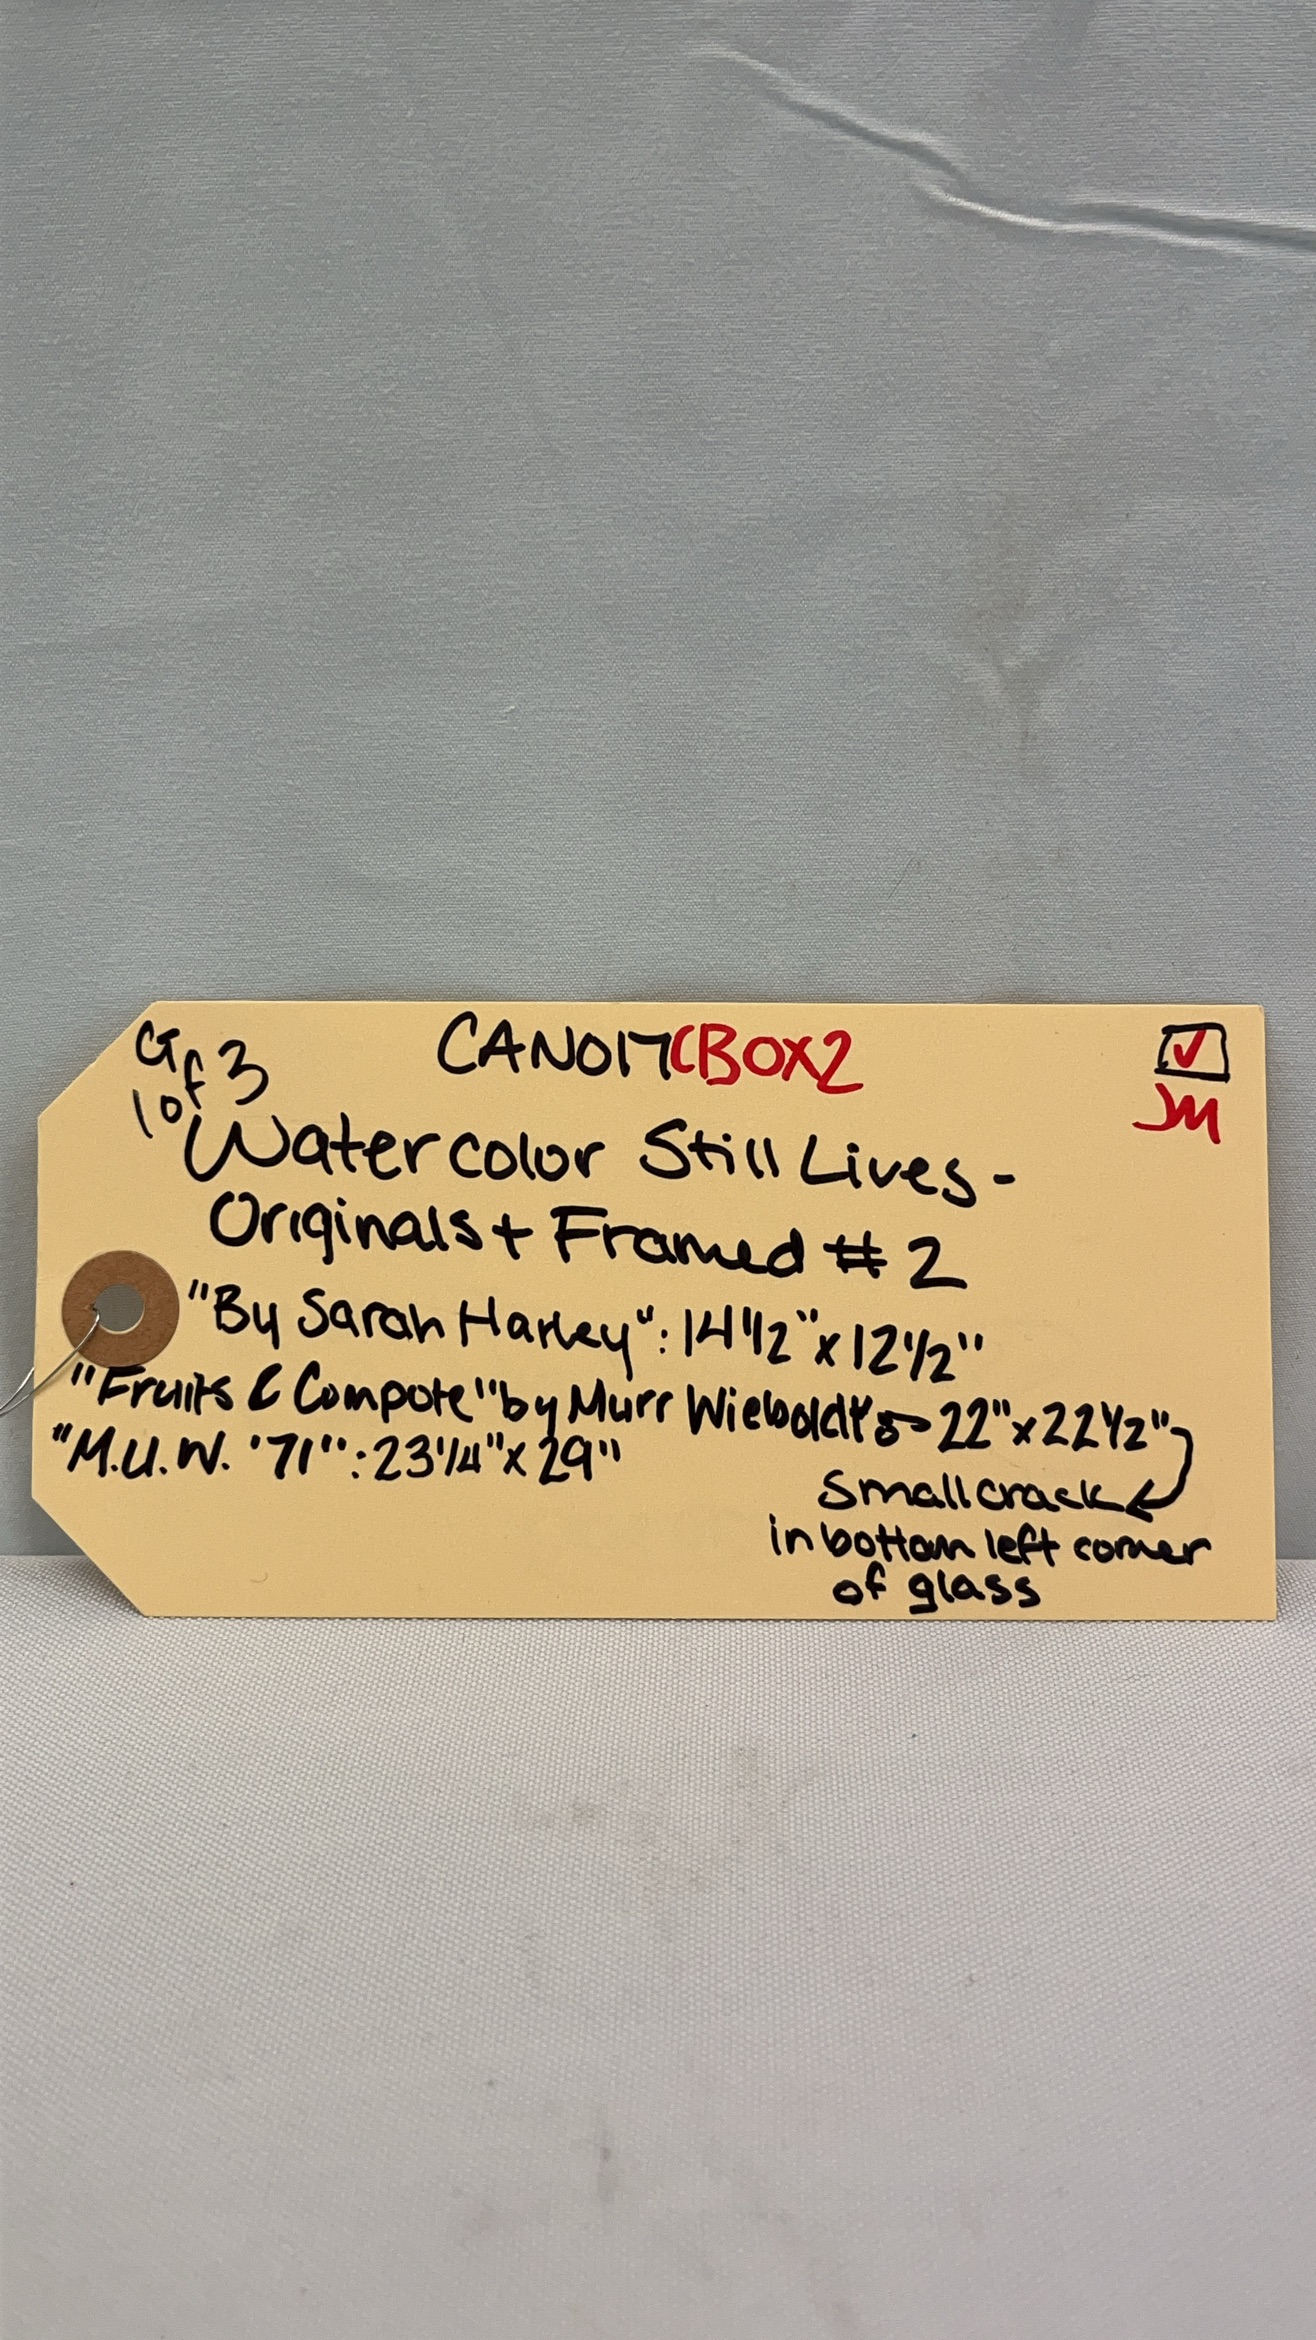 G
1 of 3
CAN017CBOX2
JM
Watercolor Still Lives-
Originals + Framed # 2
"By Sarah Harley": 14 1/2" x 12 1/2"
"Fruits C Compote" by Murr 22" x 22 1/2"
"M.U.W. '71": 23 1/4" x 29"
Small crack
in bottom left corner
of glass